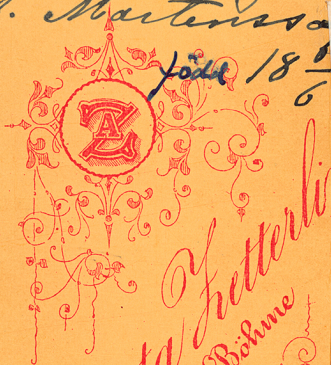 Martenss
född 18
6
AZ
ta Zetterli
Böhme